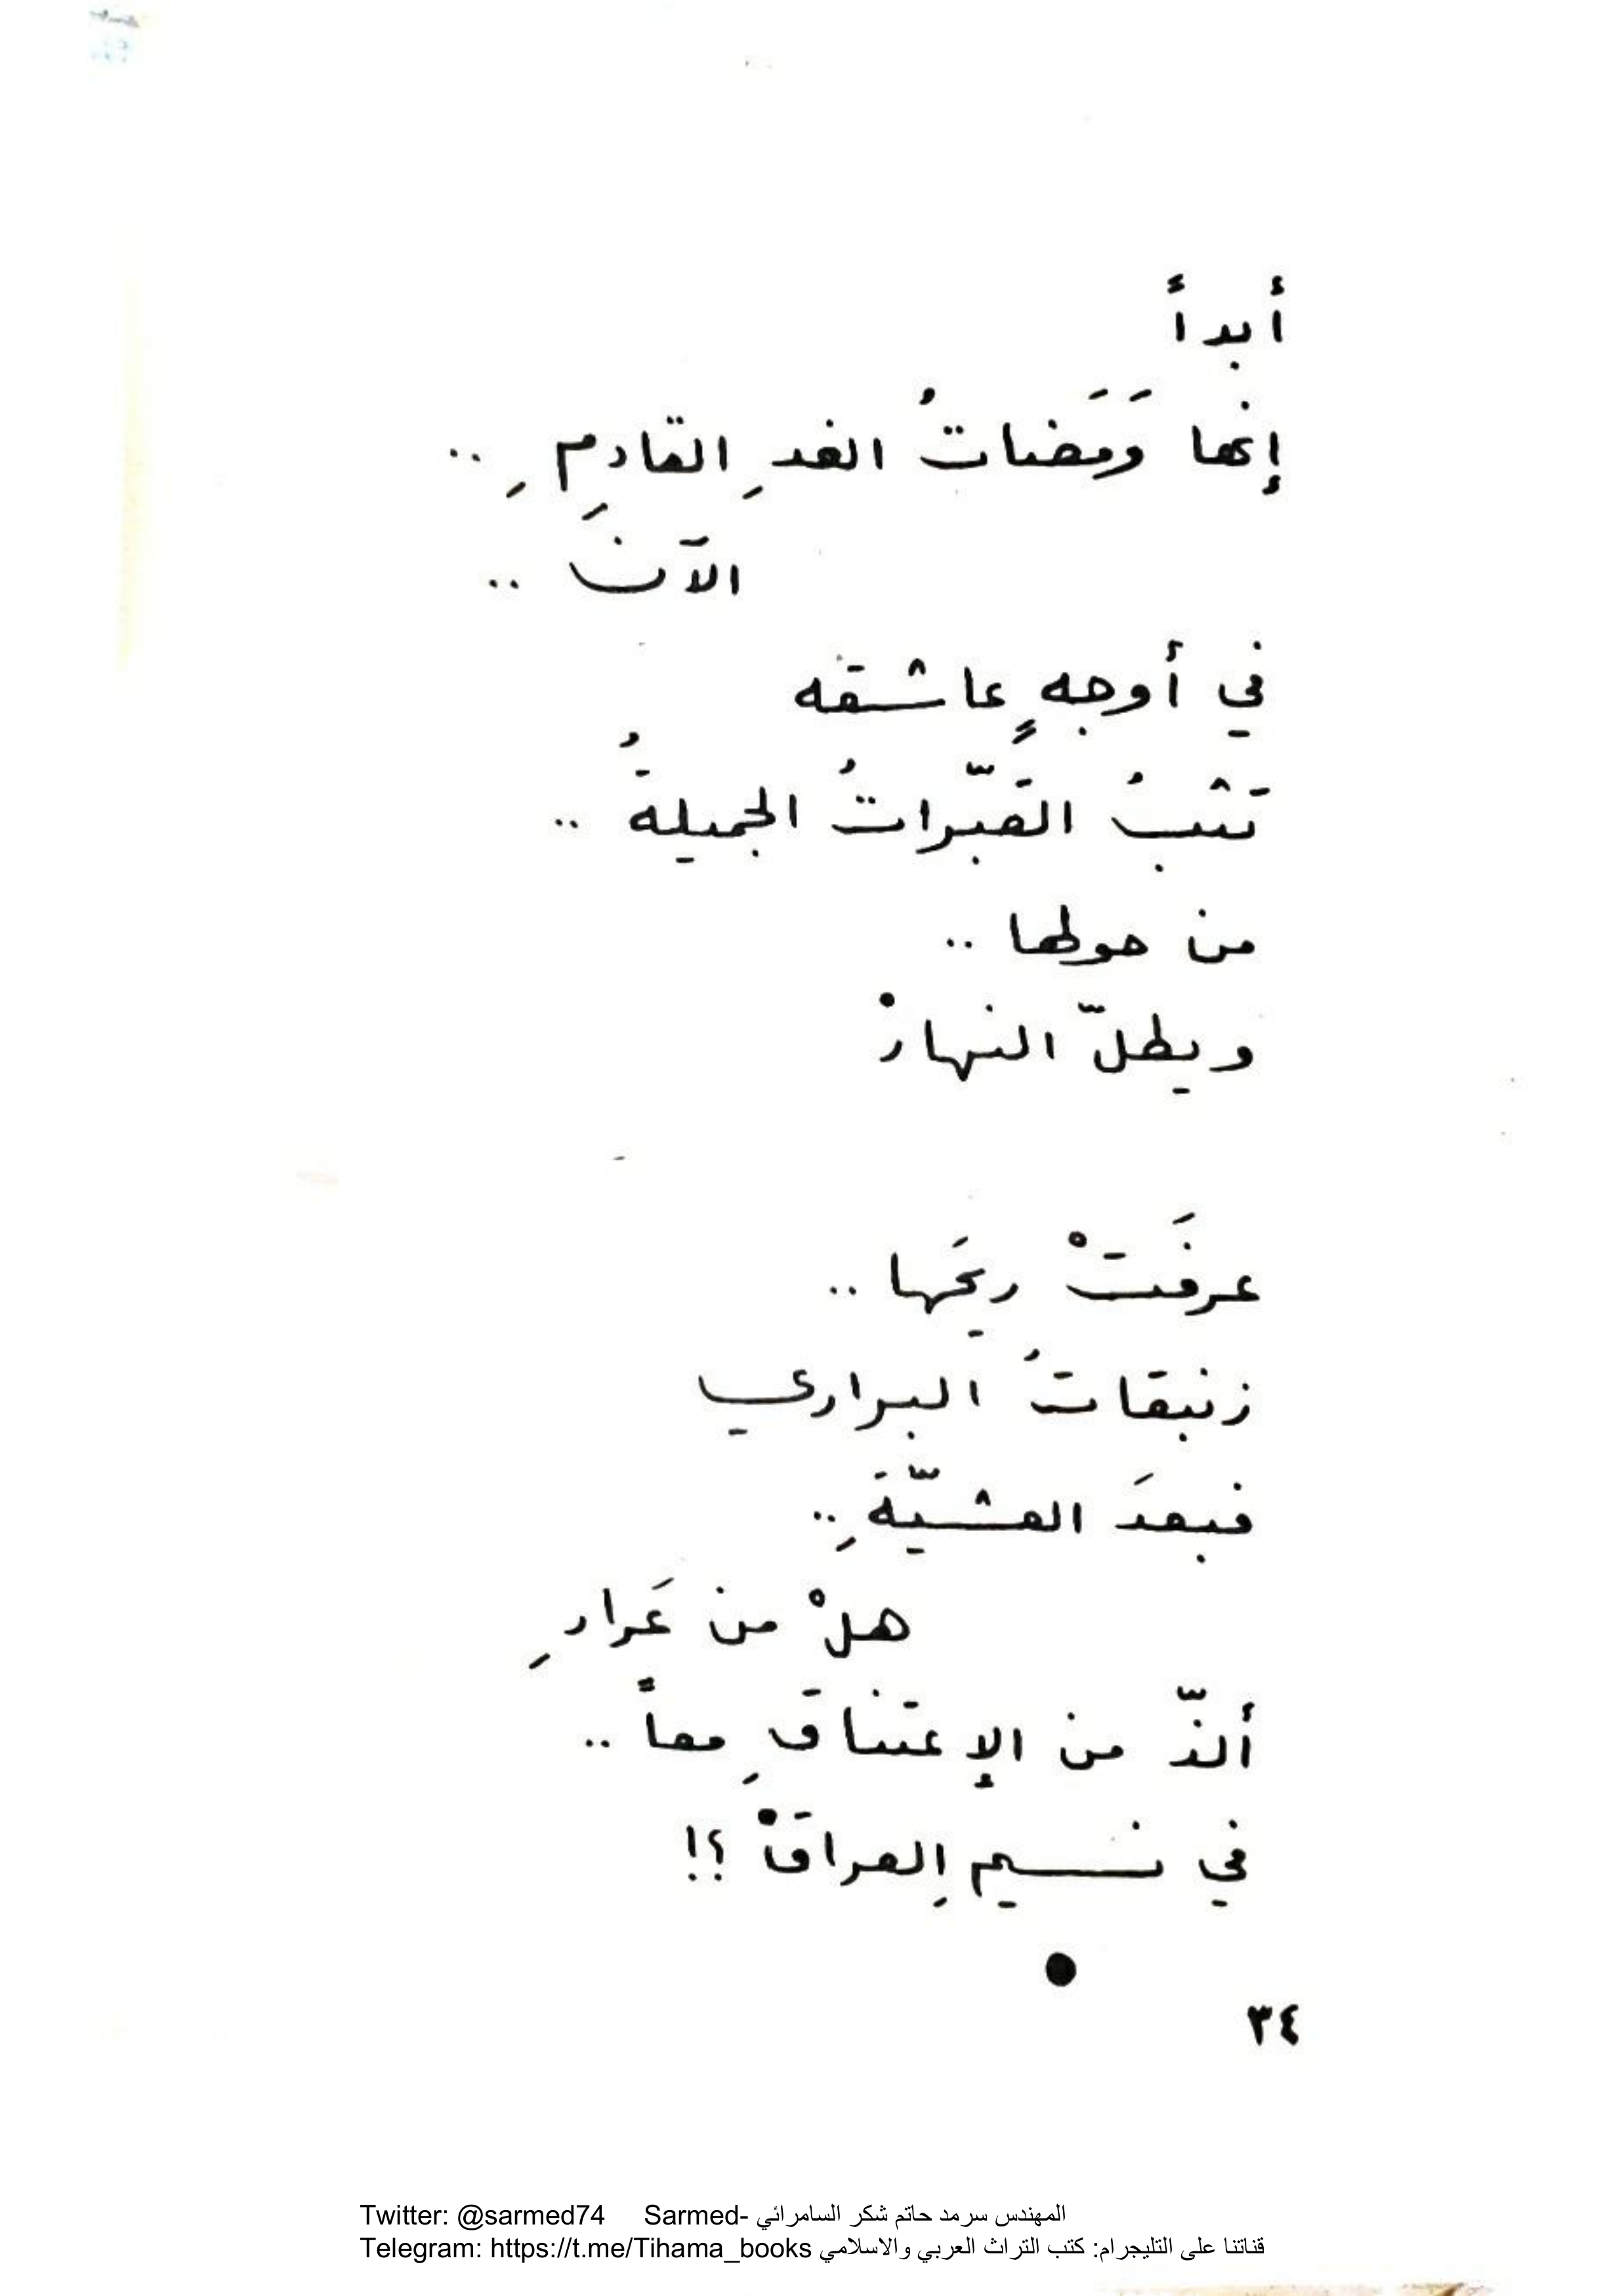 أبداً
إنها وَمَضاتُ الغدِ القادِمِ ..
الآنَ ..
في أوجهٍ عاشقه
تَثبُ القَبّراتُ الجميلةُ ..
من حولها ..
ويطلّ النهارْ
عرفَتْ ريحَها ..
زنبقاتُ البراري
فبعدَ العشيّةِ ..
هلْ من عَرارِ
ألذّ من الإعتناقِ معاً ..
في نسيمِ العراقْ ؟!
●
٣٤
Twitter: @sarmed74 Sarmed- المهندس سرمد حاتم شكر السامرائي
Telegram: https://t.me/Tihama_books قناتنا على التليجرام: كتب التراث العربي والاسلامي